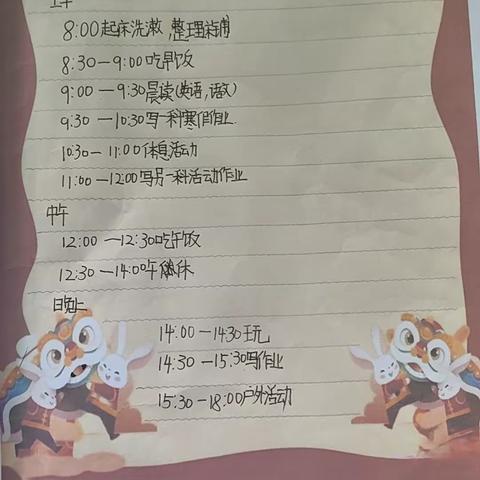 上午
8:00起床洗漱,整理床铺
8:30—9:00吃早饭
9:00—9:30晨读(英语,语文)
9:30—10:30写一科寒假作业
10:30—11:00休息活动
11:00—12:00写另一科活动作业
中午
12:00—12:30吃午饭
12:30—14:00午休
晚上
14:00—14:30玩
14:30—15:30写作业
15:30—18:00户外活动